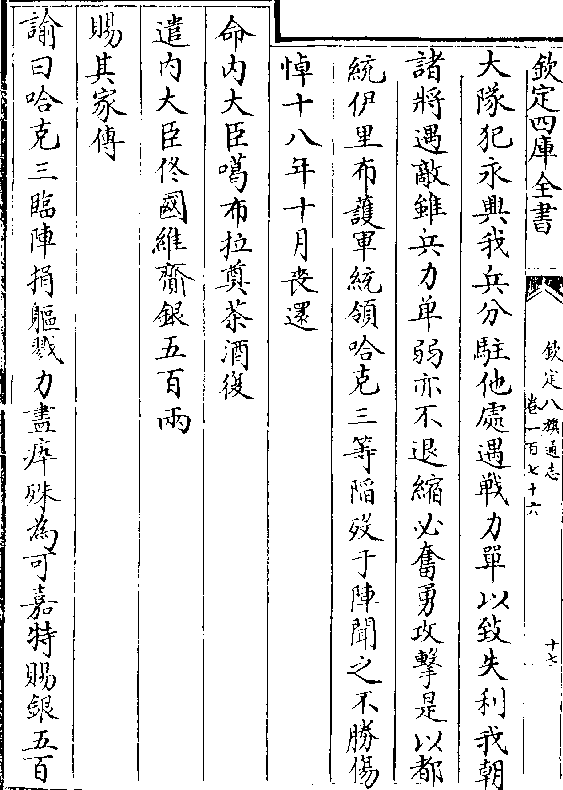 欽定四庫全書
欽定八旗通志
卷一百七十六
十七
大隊犯永興我兵分駐他處遇戰力單以致失利我朝
諸將遇敵雖兵力单弱亦不退縮必奮勇攻擊是以都
統伊里布護軍統領哈克三等陷歿于陣聞之不勝傷
悼十八年十月喪還
命内大臣噶布拉奠茶酒復
遣内大臣佟國維齎銀五百兩
賜其家傳
諭曰哈克三臨陣捐軀戮力盡瘁殊為可嘉特賜銀五百